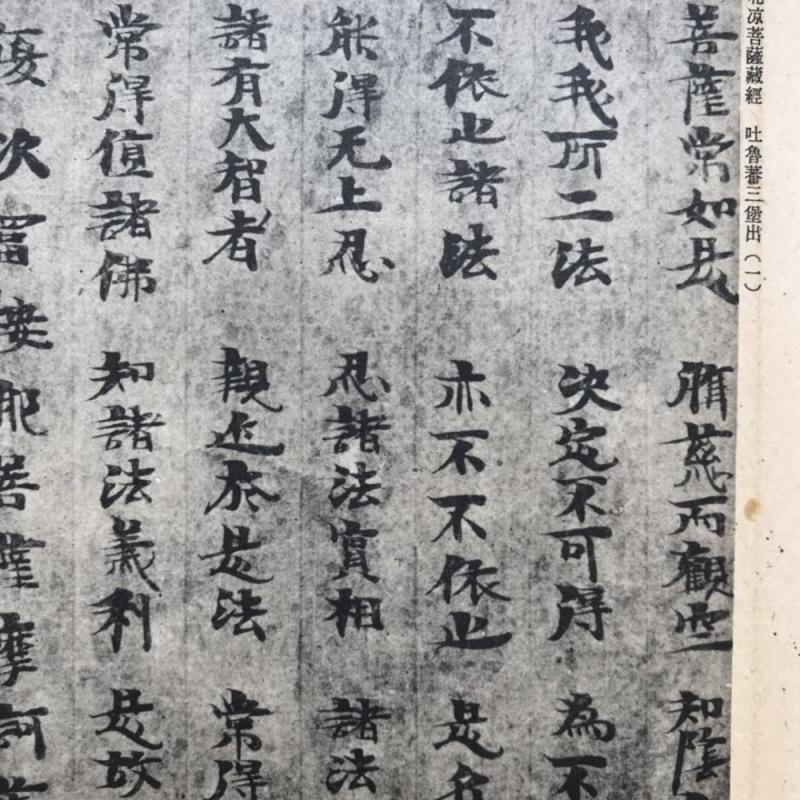 北凉菩薩藏經 吐魯蕃三堡出（一）
菩薩常如是 脩慈而觀空 知陰
我我所二法 决定不可得 為不
不依止諸法 亦不不依止 是
能得无上忍 忍諸法實相 諸法
諸有大智者 親近於是法 常得
常得值諸佛 知諸法義利 是故
復次富樓那菩薩摩訶